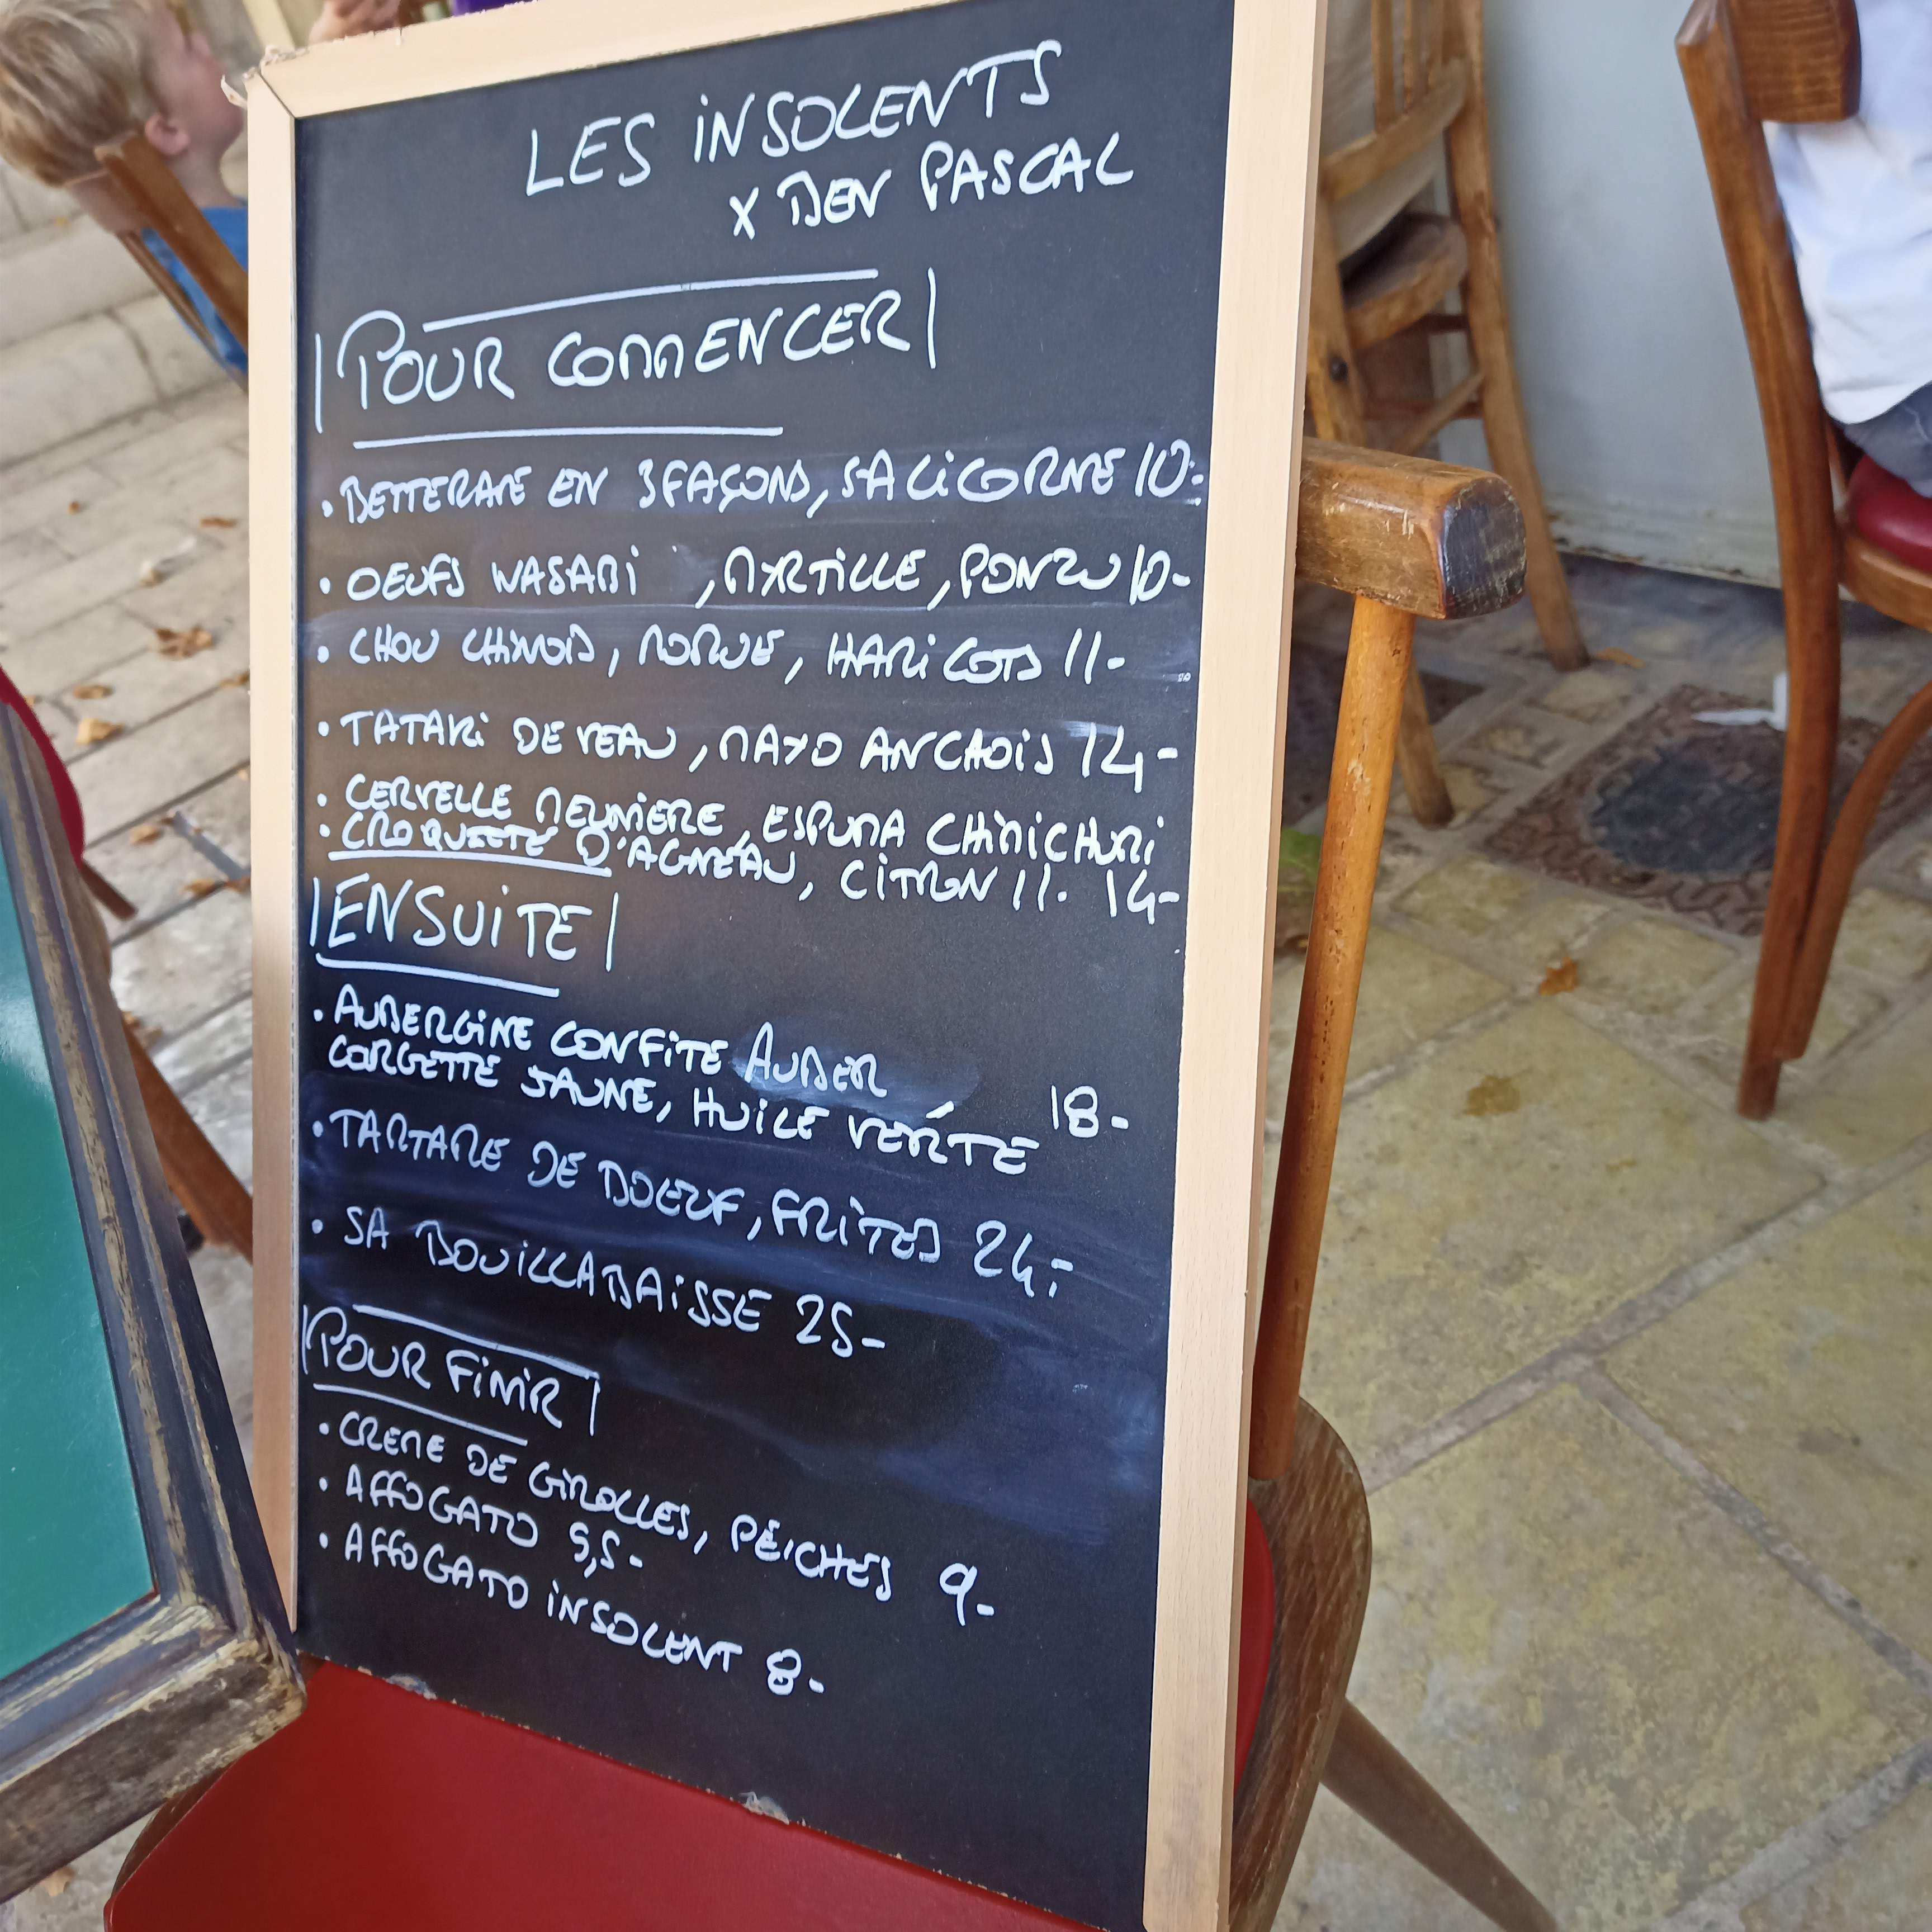 LES INSOLENTS
X BEN PASCAL
POUR COMMENCER
• BETTERAVE EN 3 FAÇONS, SALICORNE 10-
• OEUFS WASABI , MYRTILLE, PONZU 10-
• CHOU CHINOIS, MORUE, HARICOTS 11-
• TATAKI DE VEAU, MAYO ANCHOIS 14-
• CERVELLE MEUNIERE, ESPUMA CHIMICHURI 14-
• CROQUETTE D'AGNEAU, CITRON 11-
ENSUITE
• AUBERGINE CONFITE AUBER
CORGETTE JAUNE, HUILE VERTE 18-
• TARTARE DE BOEUF, FRITES 24-
• SA BOUILLABAISSE 25-
POUR FINIR
• CREME DE GIROLLES, PÉICHES 9-
• AFFOGATO 5,5-
• AFFOGATO INSOLENT 8-